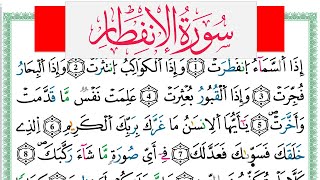 سُورَةُ الإِنفِطَارِ
إِذَا السَّمَآءُ انفَطَرَتْ ① وَإِذَا الْكَوَاكِبُ انتَثَرَتْ ② وَإِذَا الْبِحَارُ
فُجِّرَتْ ③ وَإِذَا الْقُبُورُ بُعْثِرَتْ ④ عَلِمَتْ نَفْسٌ مَّا قَدَّمَتْ
وَأَخَّرَتْ ⑤ يَٰٓأَيُّهَا الْإِنسَٰنُ مَا غَرَّكَ بِرَبِّكَ الْكَرِيمِ ⑥ الَّذِي
خَلَقَكَ فَسَوَّىٰكَ فَعَدَلَكَ ⑦ فِيٓ أَيِّ صُورَةٍ مَّا شَآءَ رَكَّبَكَ ⑧